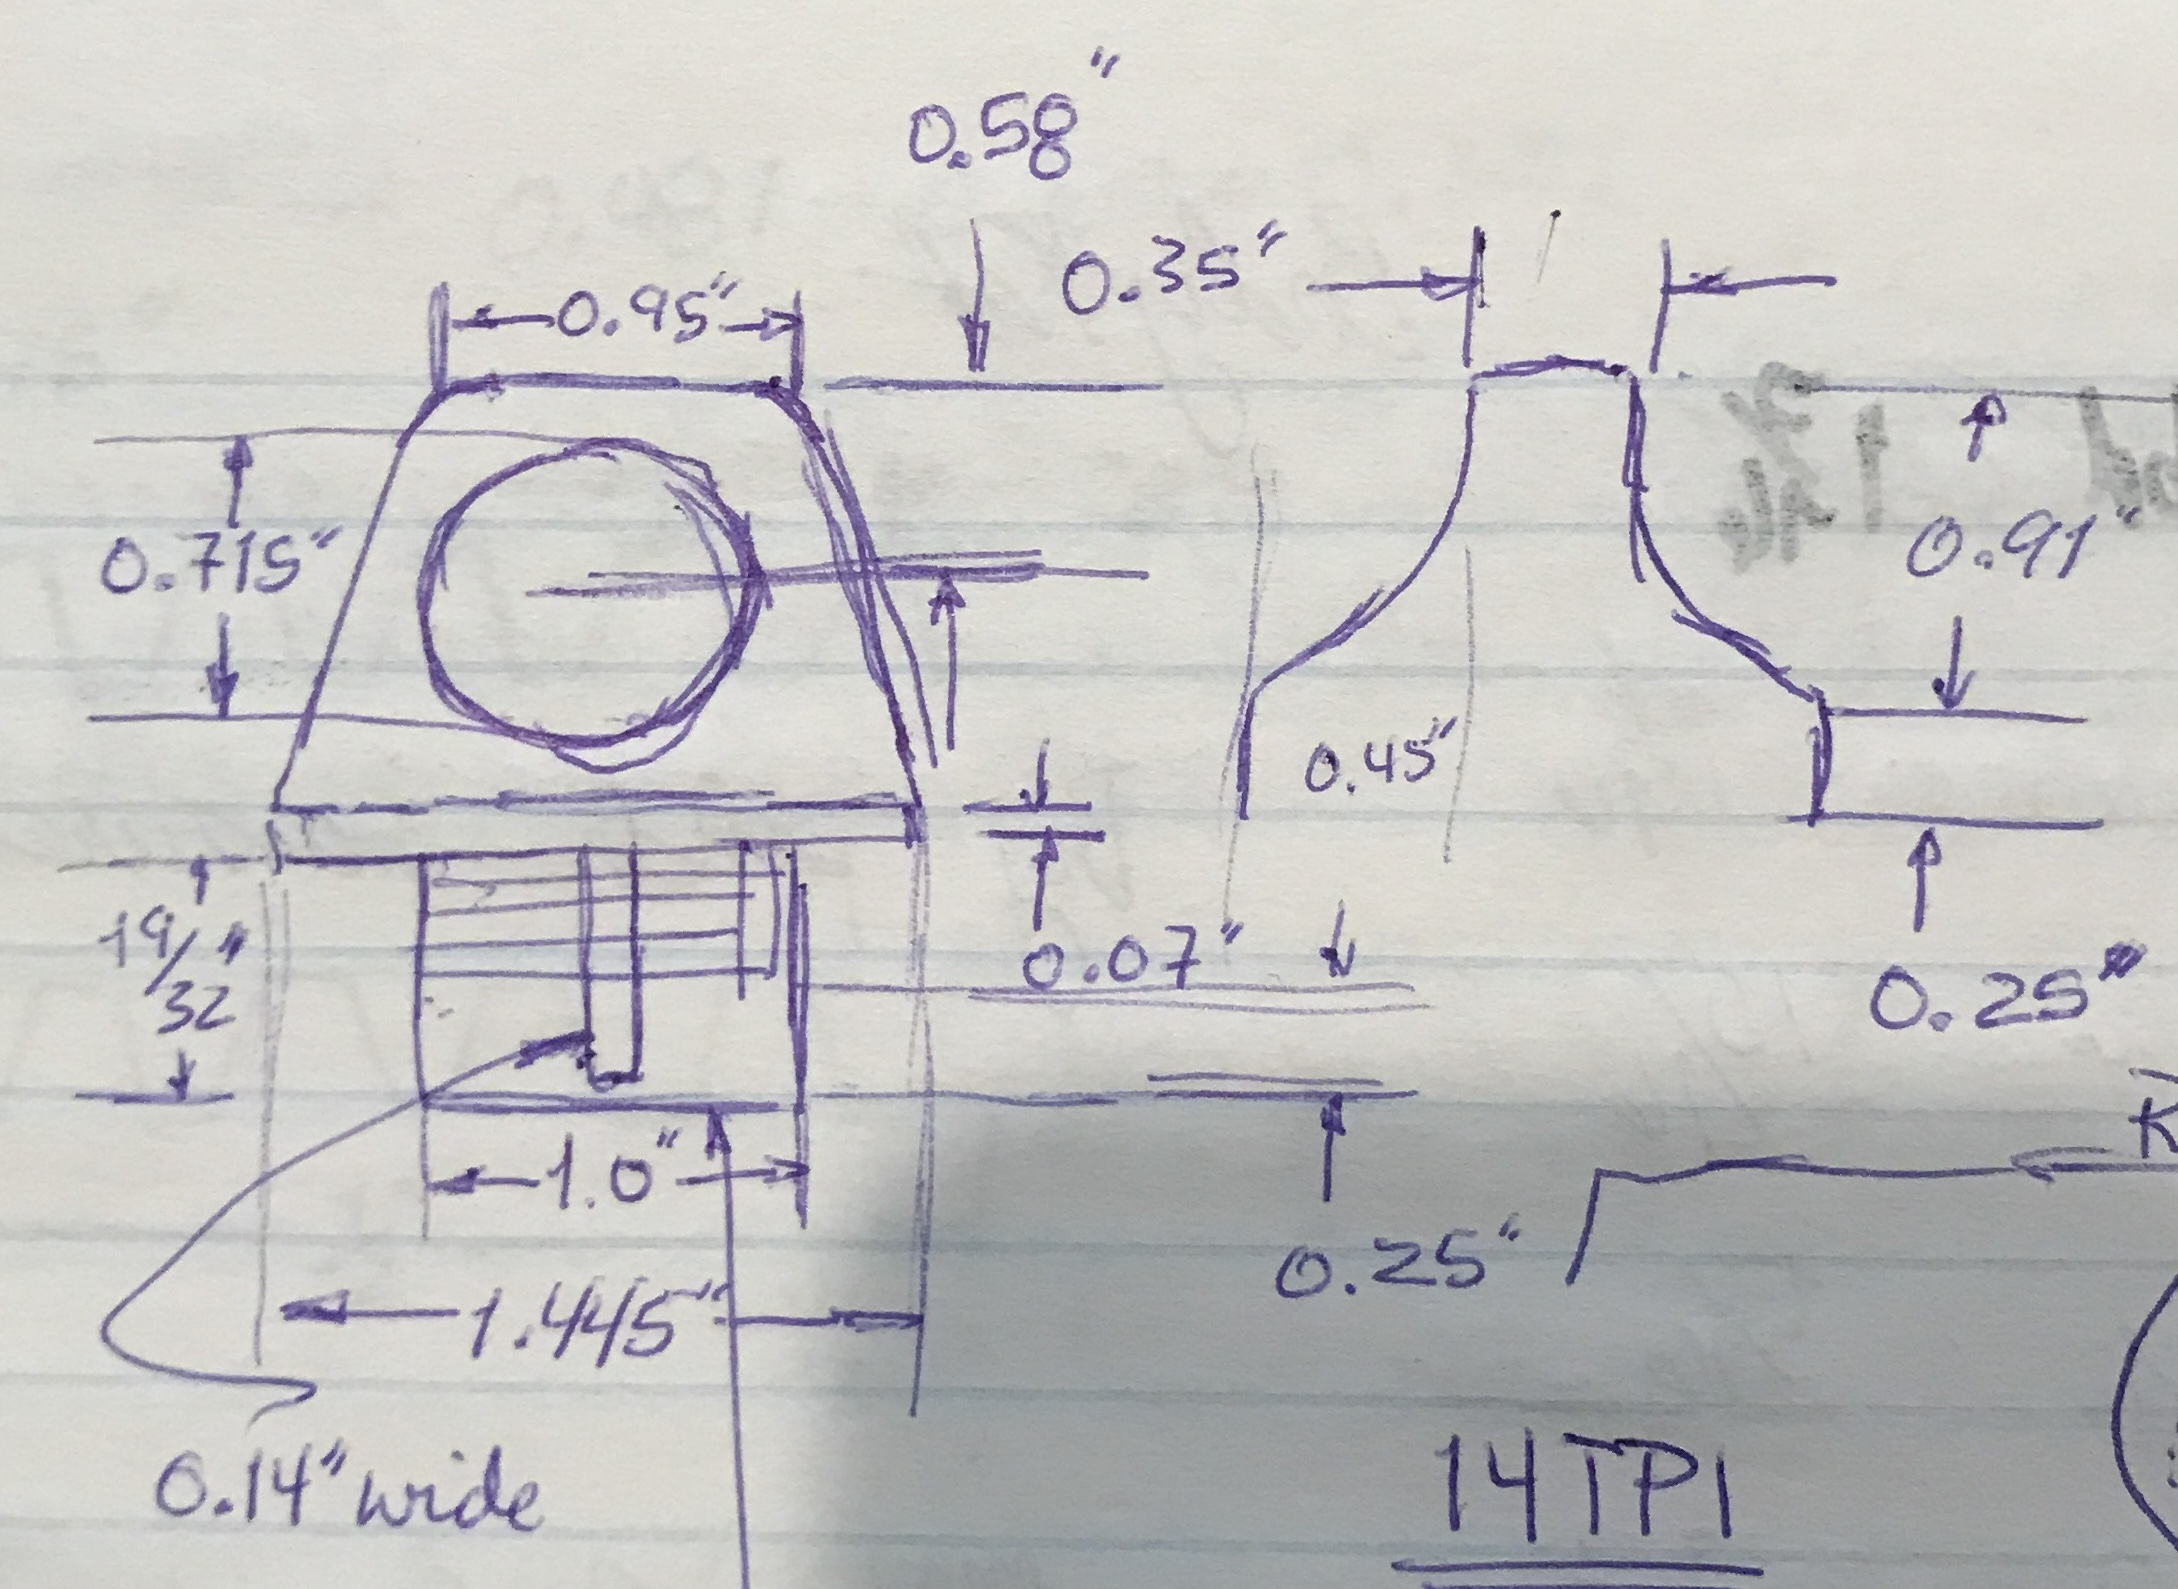 0.58"
0.35"
0.95"
0.715"
0.91"
0.45"
19/32"
0.07"
0.25"
1.0"
0.25"
1.445"
0.14" wide
14 TPI